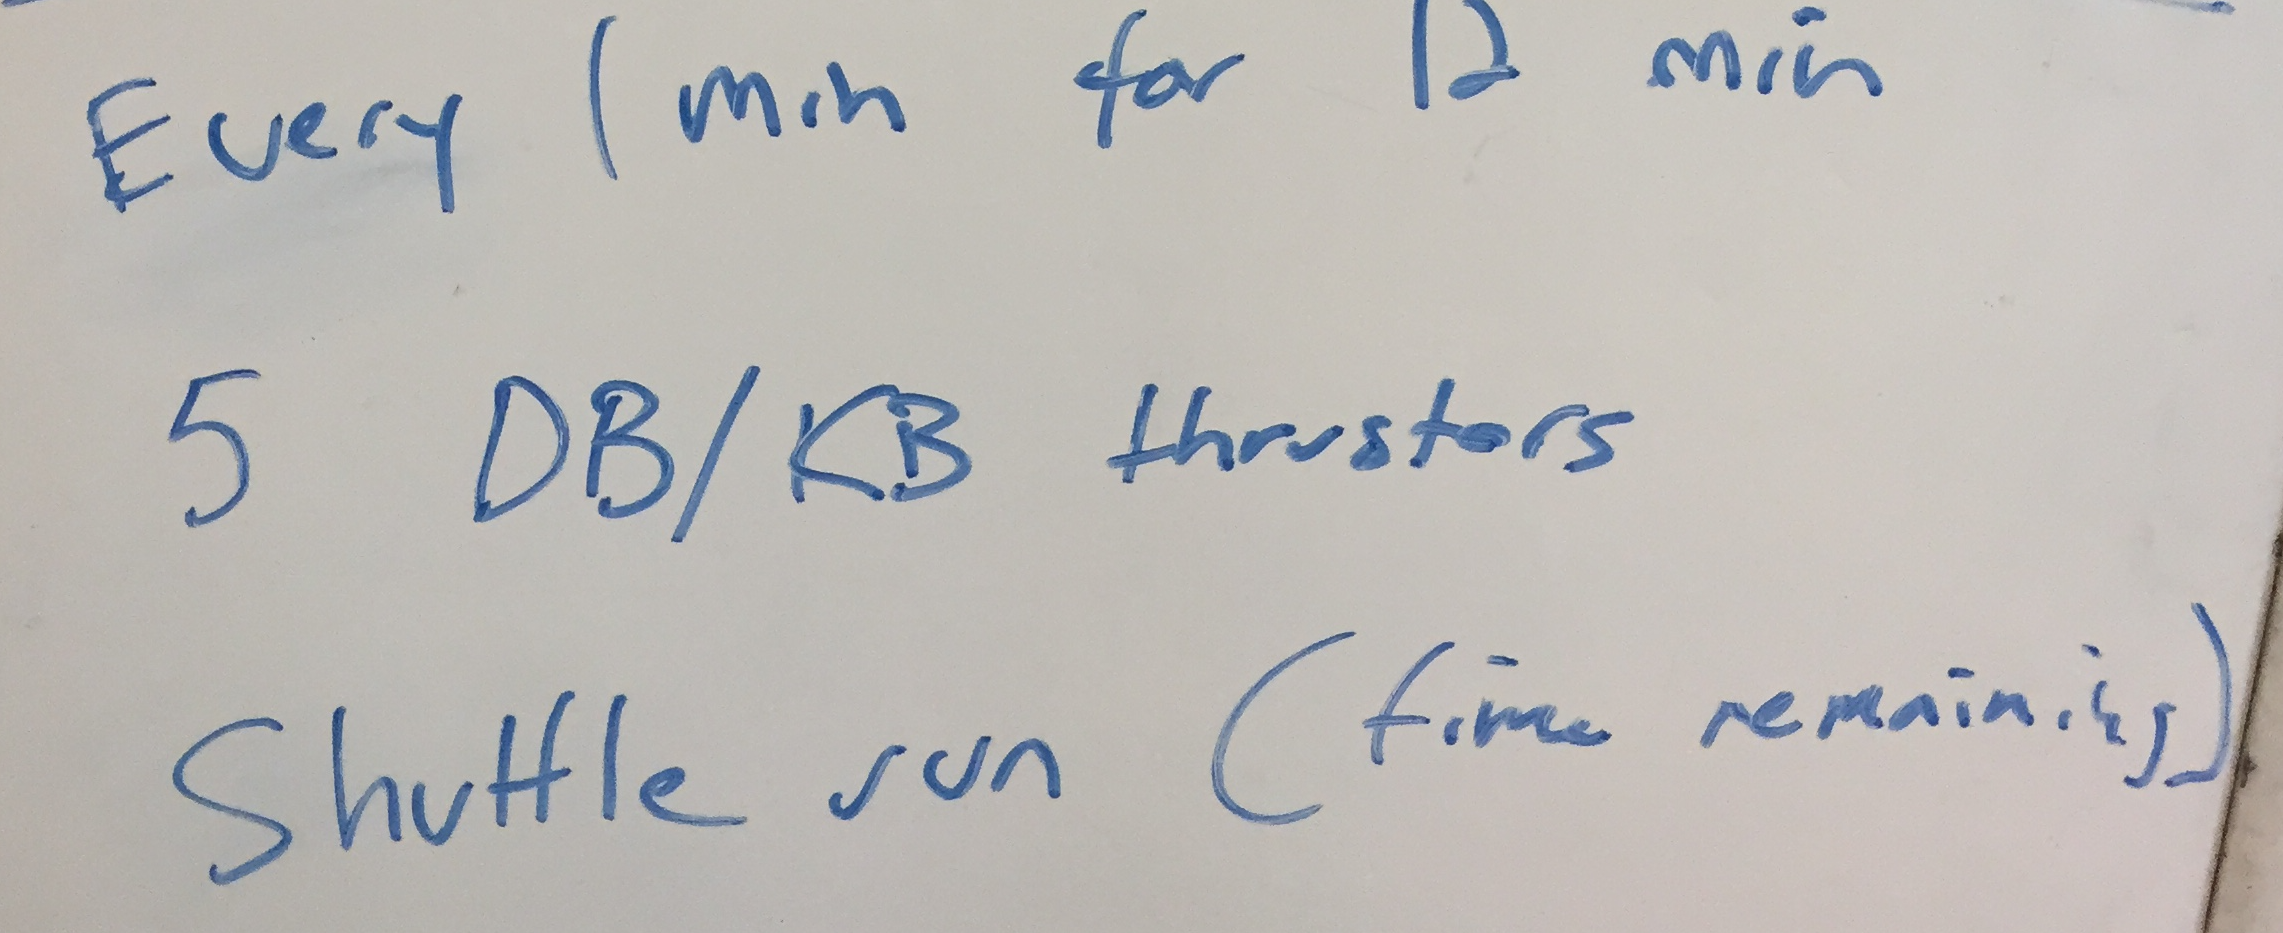 Every 1 min for 12 min
5 DB/KB thrustors
Shuttle run (time remaining)